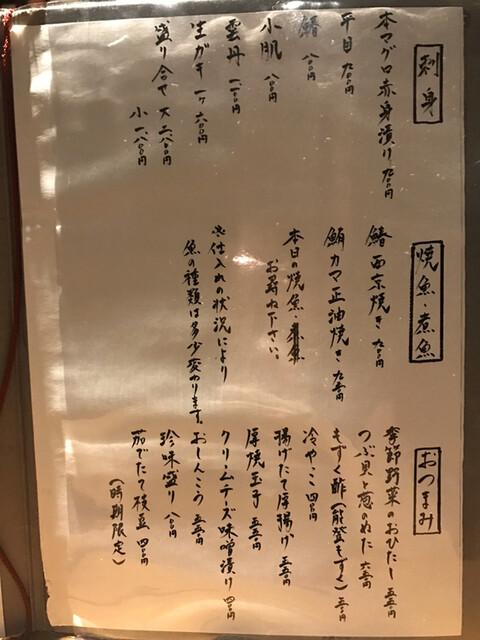 刺身
本マグロ赤身漬け 九〇〇円
平目 九〇〇円
鯖 八〇〇円
小肌 八〇〇円
雲丹 一八〇〇円
生ガキ 一ヶ 六〇〇円
盛り合せ 大 二八〇〇円
小 一八〇〇円
焼魚・煮魚
鰆西京焼き 九〇〇円
鮪カマ正油焼き 九五〇円
本日の焼魚・煮魚
お尋ね下さい。
※仕入れの状況により
魚の種類は多少変わります。
おつまみ
季節野菜のおひたし 五五〇円
つぶ貝と葱のぬた 六五〇円
もずく酢(能登もずく) 五〇〇円
冷やっこ 四五〇円
揚げたて厚揚げ 五五〇円
厚焼玉子 五五〇円
クリームチーズ味噌漬け 四五〇円
おしんこう 五五〇円
珍味盛り 八〇〇円
茹でたて枝豆 四五〇円
(時期限定)